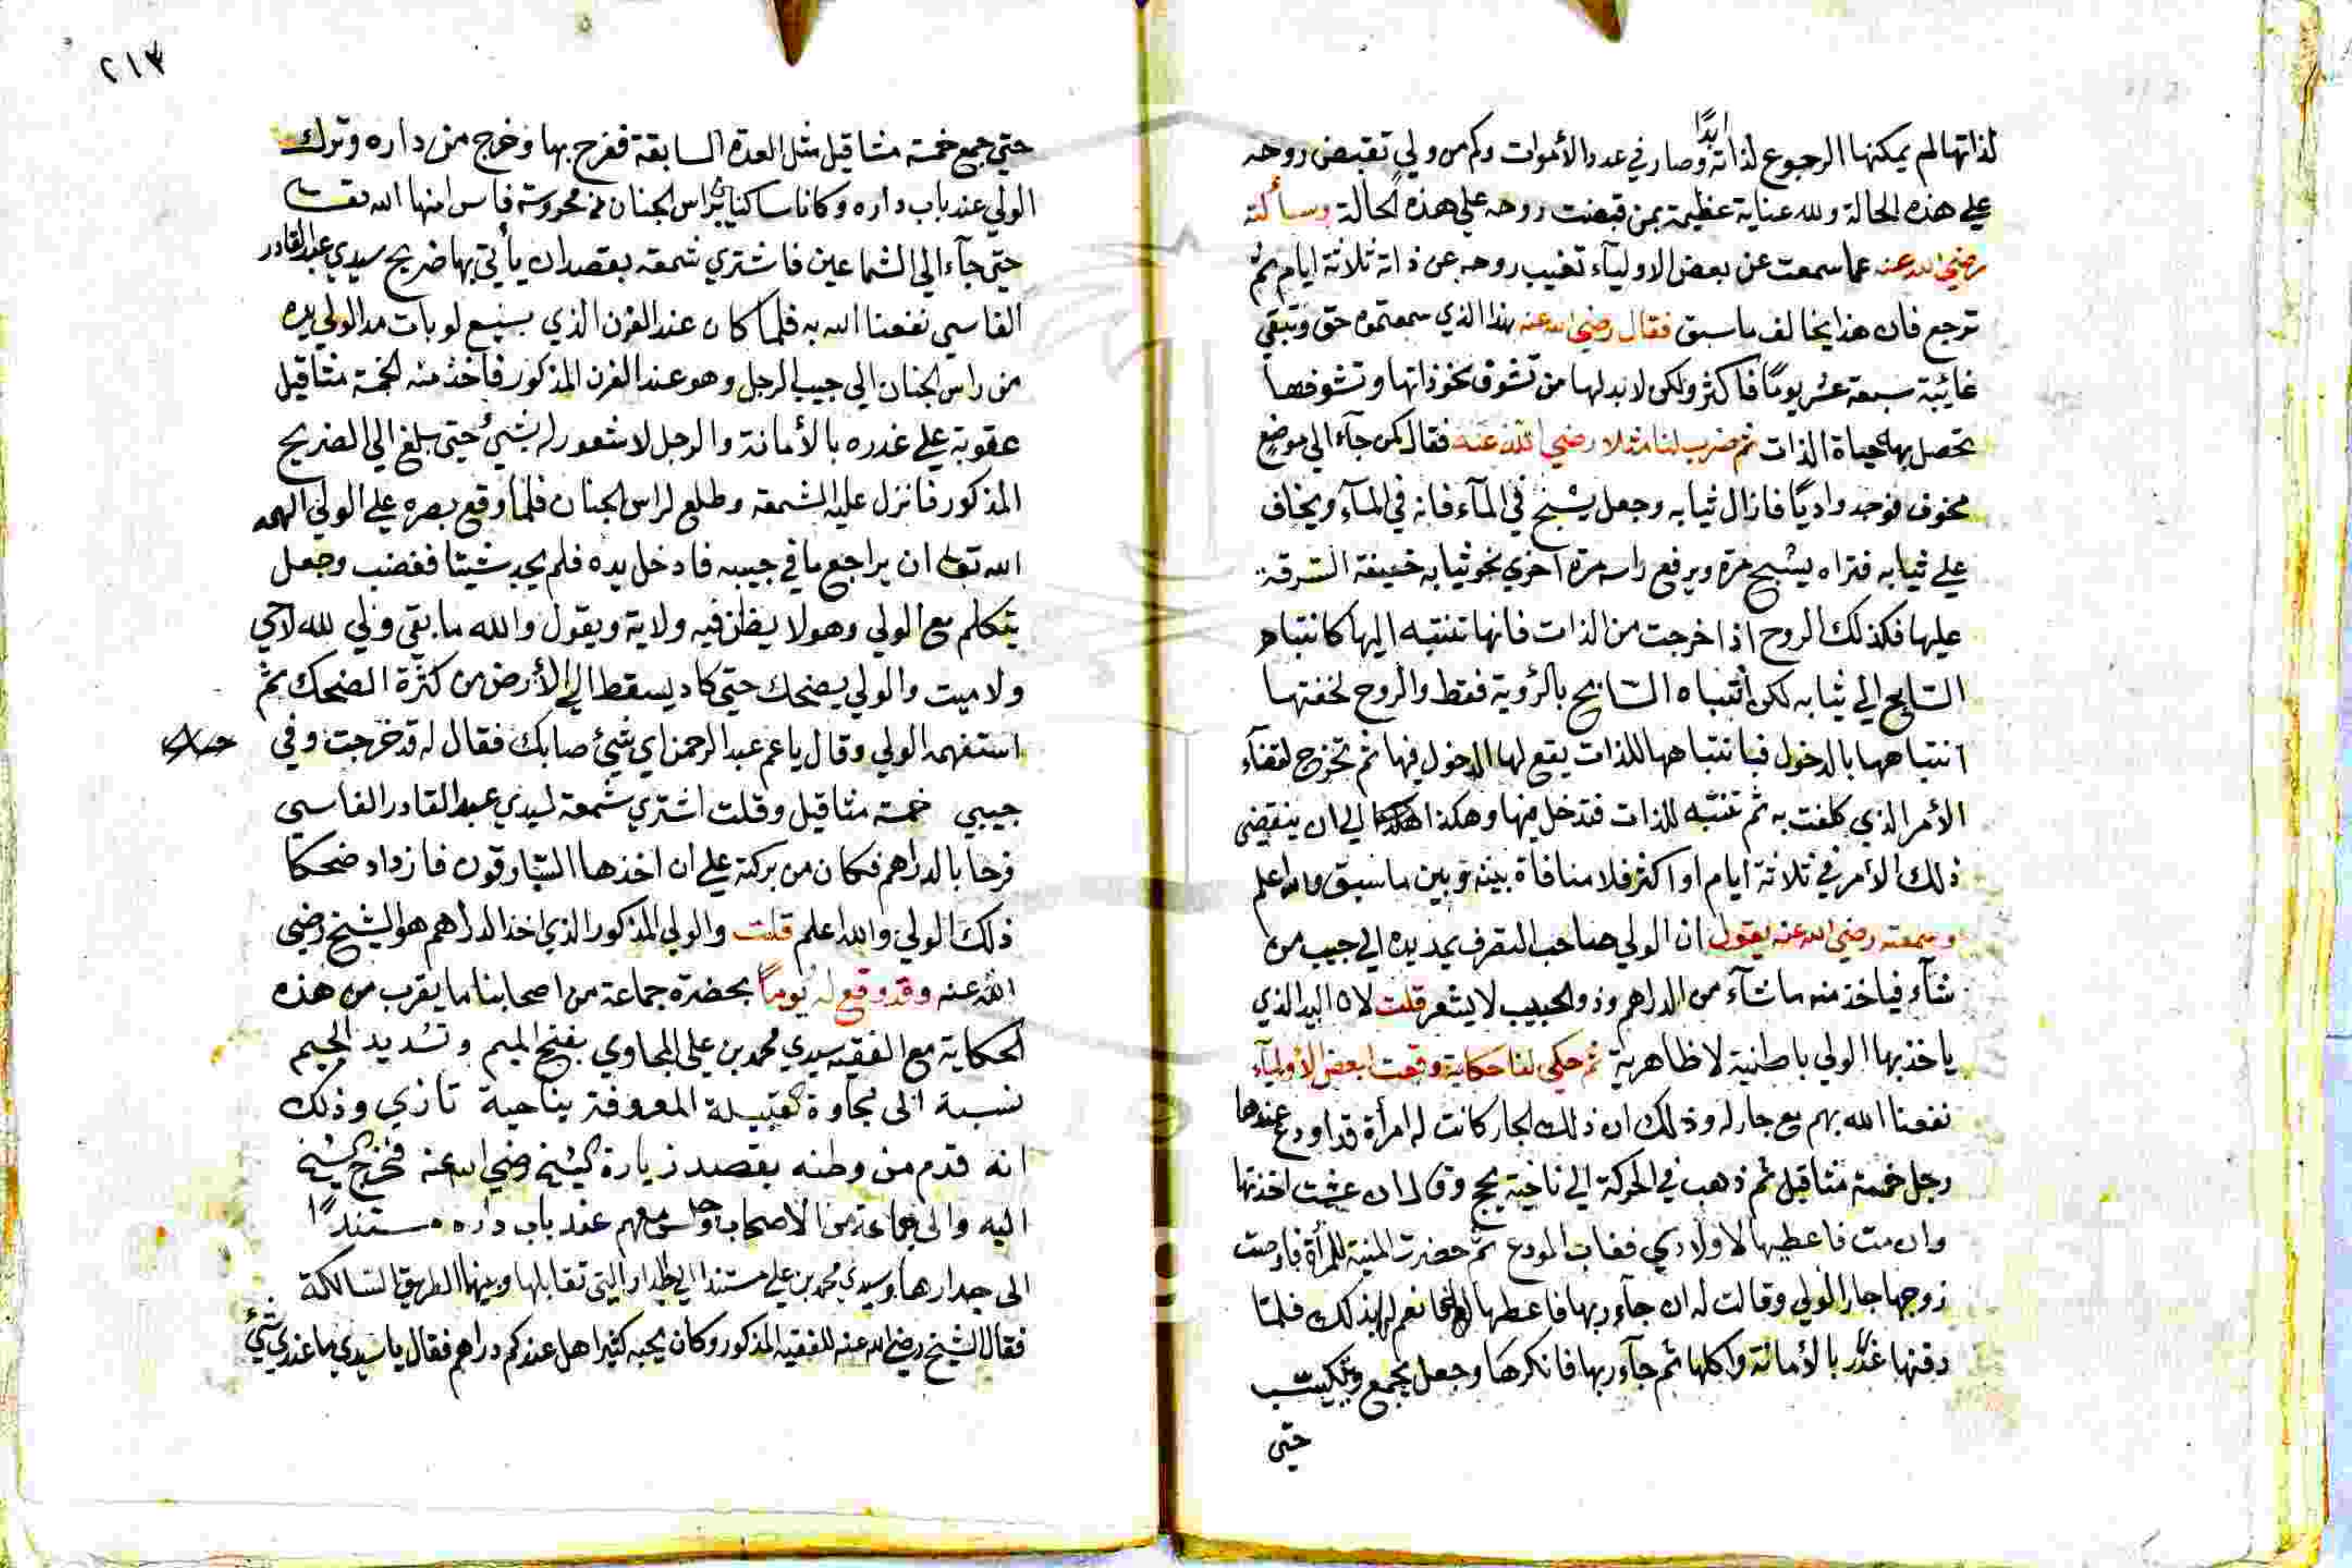 لذاتها لم يمكنها الرجوع لذاته ابدًا وصار في عدد الأموات وكم من ولي تقبض روحه
علي هذه الحالة ولله عناية عظيمة بمن قبضت روحه علي هذه الحالة وسألته
رضي الله عنه عما سمعت عن بعض الاولياء تغيب روحه عن ذاته ثلاثة ايام ثم
ترجع فان هذا يخالف ما سبق فقال رضي الله عنه هذا الذي سمعتموه حق وتبقي
غائبة سبعة عشر يومًا فاكثر ولكن لا بد لها من تشوق نحو ذاتها وتشوفها
تحصل بها حياة الذات ثم ضرب لنا مثلا رضي الله عنه فقال كمن جآء الي موضع
مخوف فوجد واديًا فازال ثيابه وجعل يسبح في المآء فانه في المآء ويخاف
علي ثيابه فتراه يسبح مرة ويرفع راسه مرة اخري نحو ثيابه خيفة السرقة
عليها فكذلك الروح اذا خرجت من الذات فانها تنتبه اليها كانتباه
السابح الي ثيابه لكن انتباه السابح بالرؤية فقط والروح لخفتها
انتباهها بالدخول فبانتباهها للذات يقع لها الدخول فيها ثم تخرج لقضآء
الأمر الذي كلفت به ثم تنتبه للذات فتدخل فيها وهكذا هكذا الي ان ينقضي
ذلك الأمر في ثلاثة ايام او اكثر فلا منافاة بينه وبين ما سبق والله اعلم
وسمعته رضي الله عنه يقول ان الولي صاحب التصرف يمد يده الي جيب من
شآء فياخذ منه ما شآء من الدراهم وذو الجيب لا يشعر قلت لان اليد الذي
ياخذ بها الولي باطنية لا ظاهرية ثم حكي لنا حكاية وقعت لبعض الأوليآء
نفعنا الله بهم مع جار له وذلك ان ذلك الجار كانت له امرأة قد اودع عندها
رجل خمسة مثاقيل ثم ذهب في الحركة الي ناحية يج وقال ان عشت اخذتها
وان مت فاعطيها لاولادي فغاب المودع ثم حضرت المنية للمرأة فاوصت
زوجها جار الولي وقالت له ان جآء ربها فاعطها له فانعم لها بذلك فلما
دفنها غدر بالأمانة واكلها ثم جآء ربها فانكرها وجعل يجمع ويكتسب
حتى
٢١٣
حتي جمع خمسة مثاقيل مثل العدة السابقة ففرح بها وخرج من داره وترك
الولي عند باب داره وكانا ساكنا براس الجنان من محروسة فاس امنها الله
حتي جآء الي الشماعين فاشتري شمعة بقصد ان يأتي بها ضريح سيدي عبد القادر
الفاسي نفعنا الله به فلما كان عند الفرن الذي بسبع لويات مد الولي يده
من راس الجنان الي جيب الرجل وهو عند الفرن المذكور فاخذ منه الخمسة مثاقيل
عقوبة علي غدره بالأمانة والرجل لا شعور له بشيء حتي بلغ الي الضريح
المذكور فانزل عليه الشمعة وطلع لراس الجنان فلما وقع بصره علي الولي الهمه
الله تعالى ان يراجع ما في جيبه فادخل يده فلم يجد شيئا فغضب وجعل
يتكلم مع الولي وهو لا يظن فيه ولاية ويقول والله ما بقي ولي لله لا حي
ولا ميت والولي يضحك حتي كاد يسقط الي الأرض من كثرة الضحك ثم
استفهمه الولي وقال يا عم عبد الرحمن اي شيء صابك فقال له قد خرجت وفي
جيبي خمسة مثاقيل وقلت اشتري شمعة لسيدي عبد القادر الفاسي
فرحا بالدراهم فكان من بركته علي ان اخذها السارقون فازداد ضحكا
ذلك الولي والله اعلم قلت والولي المذكور الذي اخذ الدراهم هو الشيخ رضي
الله عنه وقد وقع له يومًا بحضرة جماعة من اصحابنا ما يقرب من هذه
الحكاية مع الفقيه سيدي محمد بن علي المجاوي بفتح الميم وتشديد الجيم
نسبة الى مجاوة القبيلة المعروفة بناحية تازي وذلك
انه قدم من وطنه بقصد زيارة الشيخ رضي الله عنه فخرج الشيخ
اليه والى جماعة من الاصحاب وجلس معهم عند باب داره مستندًا
الى جدارها وسيدي محمد بن علي مستندا الي الجدار التي تقابلها وبينهما الطريق السالكة
فقال الشيخ رضي الله عنه للفقيه المذكور وكان يحبه كثيرا هل عندكم دراهم فقال يا سيدي ما عندي شيء